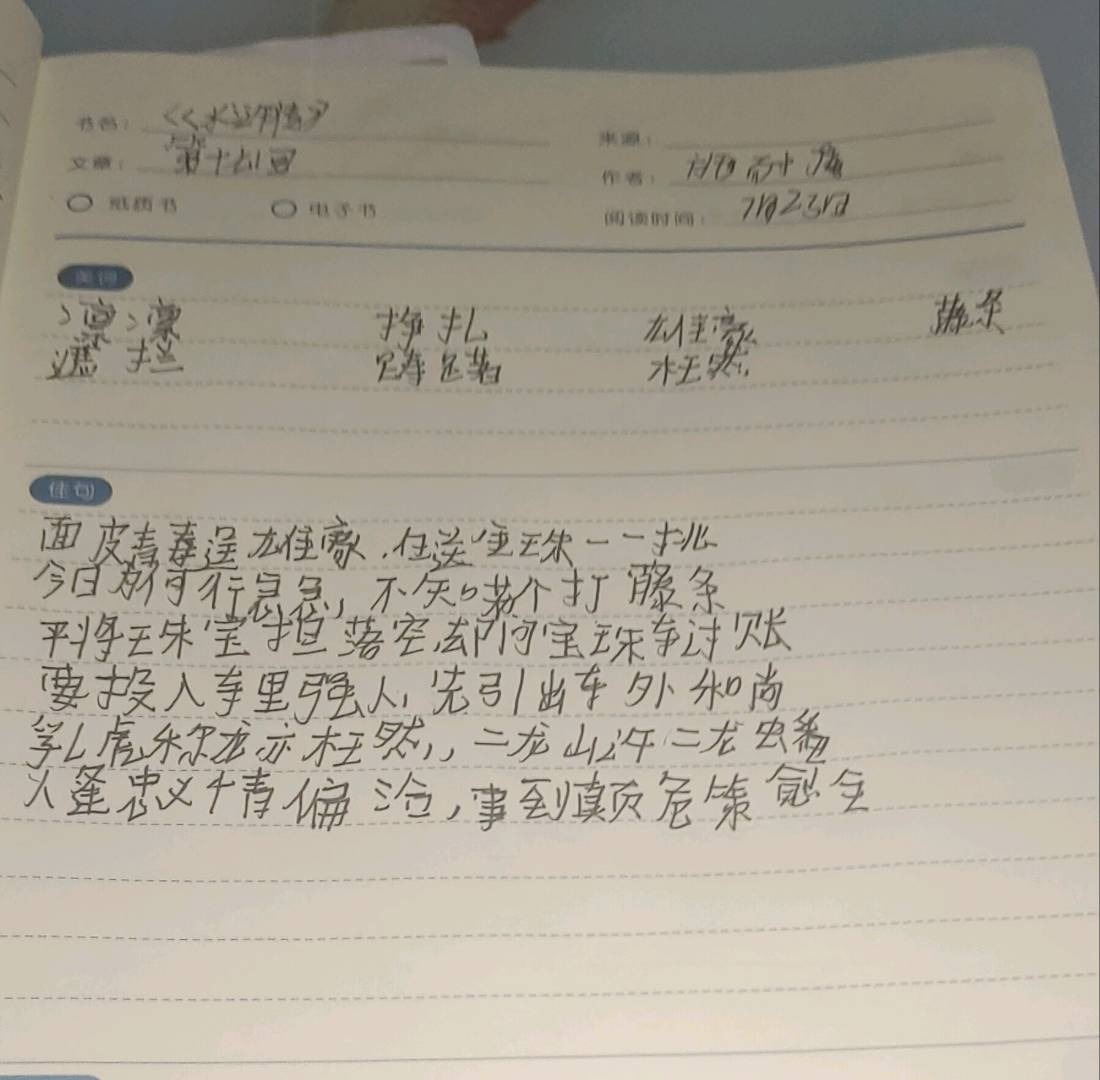 书名：《水浒传》
来源：
文章：第十六回
作者：施耐庵
纸质书 电子书
阅读时间：7月23日
美词
凛凛 挣扎 雄豪 藤条
遮拦 踌躇 枉然
佳句
面皮青毒逞雄豪，白送金珠一一挑
今日为何行急急，不知若个打藤条
平将珠宝担落空，却问宝珠寻讨账
要投入寺里强人，先引出寺外和尚
学心虎尔龙亦枉然，二龙山许二龙蟠
人逢忠义情偏洽，事到颠危策愈全